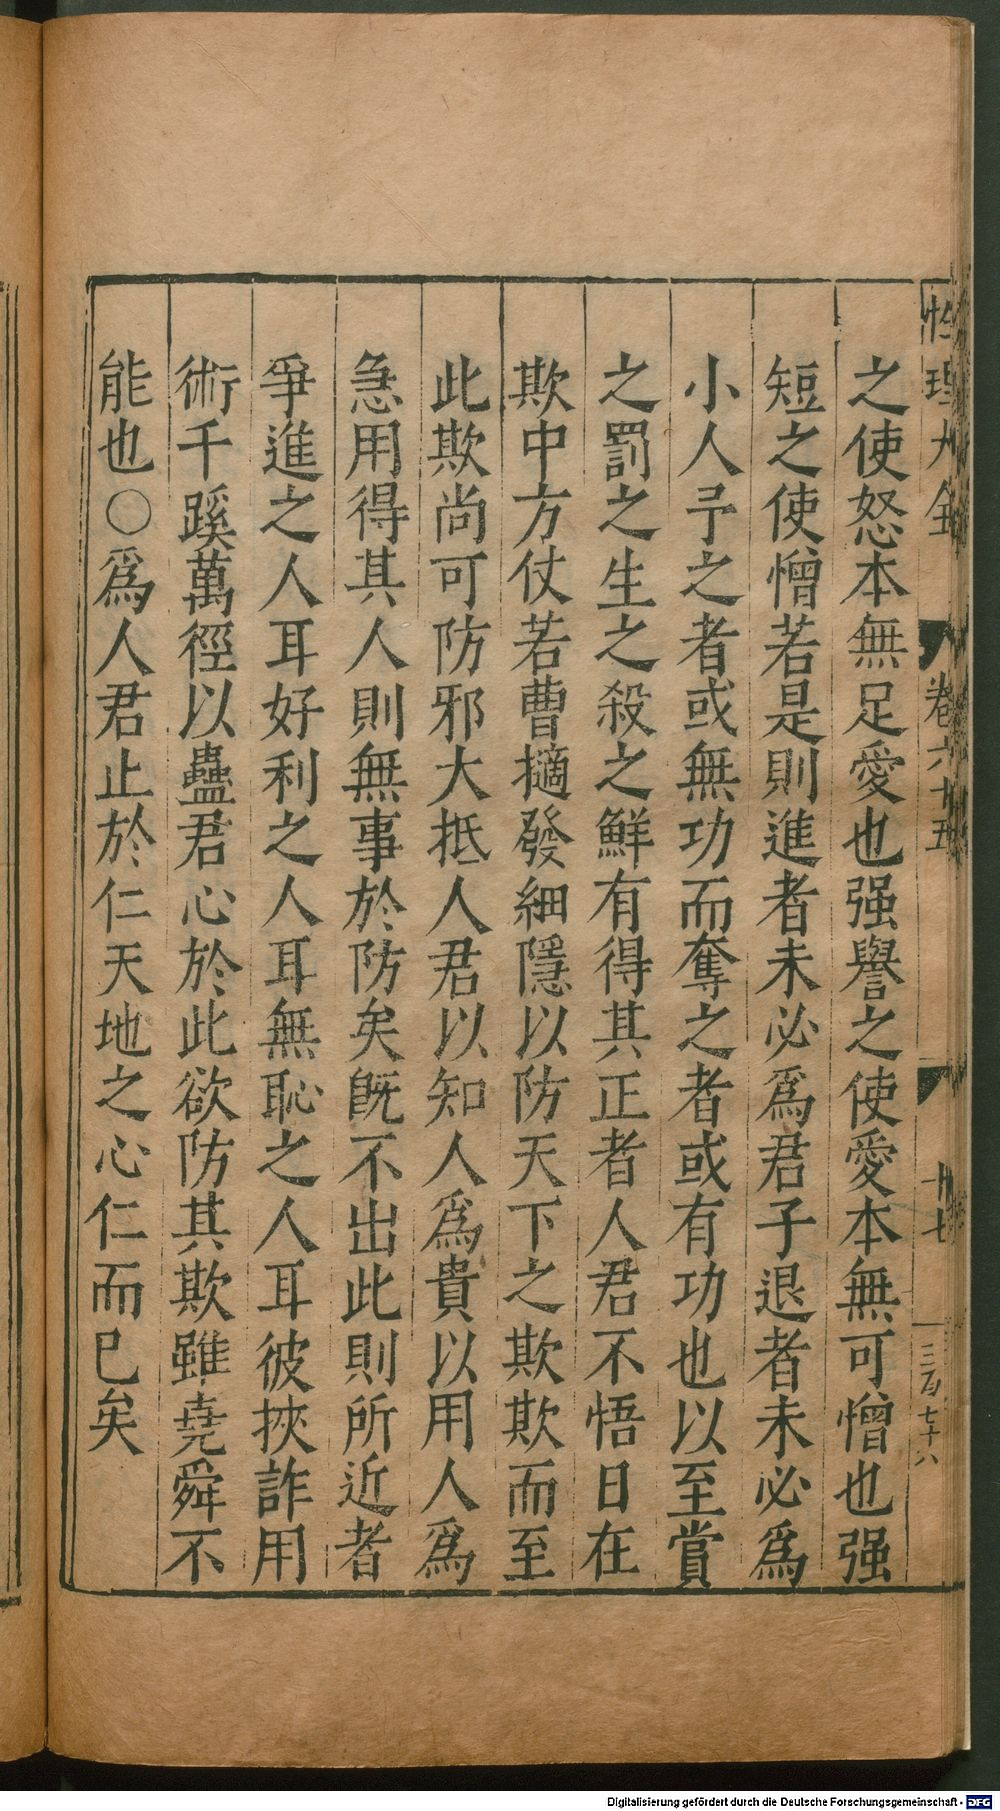 性理大全 卷六十五 十七 三百七十八
之使怒本無足愛也强譽之使愛本無可憎也强
短之使憎若是則進者未必爲君子退者未必爲
小人予之者或無功而奪之者或有功也以至賞
之罰之生之殺之鮮有得其正者人君不悟日在
欺中方仗若曹擿發細隱以防天下之欺欺而至
此欺尚可防邪大抵人君以知人爲貴以用人爲
急用得其人則無事於防矣既不出此則所近者
爭進之人耳好利之人耳無恥之人耳彼挾詐用
術千蹊萬徑以蠱君心於此欲防其欺雖堯舜不
能也○爲人君止於仁天地之心仁而已矣
Digitalisierung gefördert durch die Deutsche Forschungsgemeinschaft - DFG